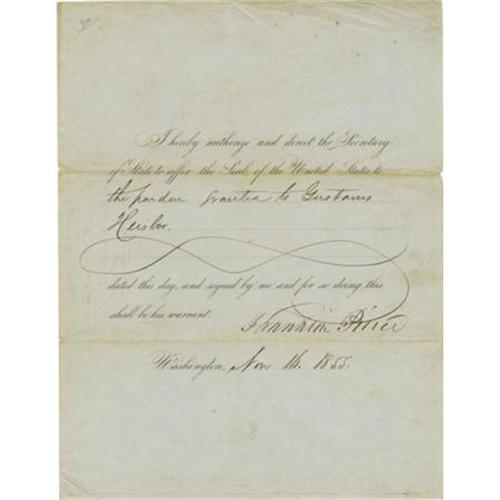 I hereby authorize and direct the Secretary
of State to affix the Seal of the United States to
the pardon granted to Gustavus
dated this day, and signed by me: and for so doing this
shall be his warrant.
Franklin Pierce
Washington, Nov 16. 1855.